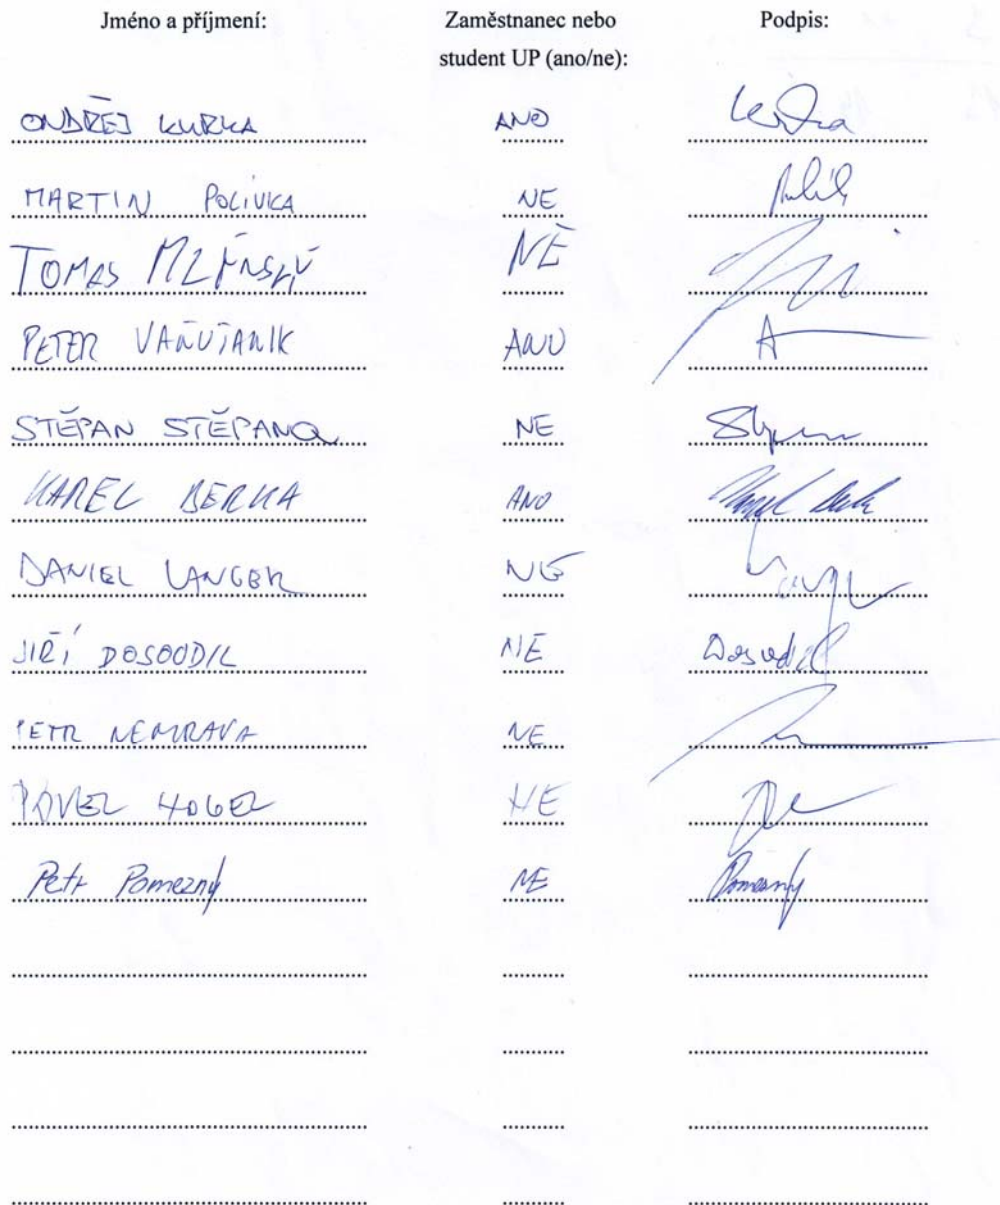 Jméno a příjmení: Zaměstnanec nebo Podpis:
student UP (ano/ne):
ONDŘEJ KURKA ANO Kurka
MARTIN POLÍVKA NE
TOMAS NE
PETER VAŇUŤANIK ANO
STĚPAN STĚPANO NE
KAREL BERKA ANO Karel Berka
DANIEL LANGER NE
JIŘÍ DOSOUDIL NE Dosoudil
PETR NEMRAVA NE
PAVEL HOGEL NE
Petr Pomezný NE Pomezný